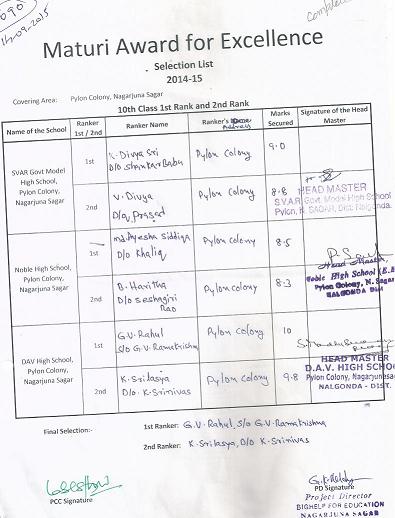 690
14-09-2015
Maturi Award for Excellence
Selection List
2014-15
Covering Area: Pylon Colony, Nagarjuna Sagar
10th Class 1st Rank and 2nd Rank
Name of the School Ranker 1st / 2nd Ranker Name Ranker's Address Marks Secured Signature of the Head Master
SVAR Govt Model
High School,
Pylon Colony,
Nagarjuna Sagar
1st
K. Divya Sri
D/o Shankar Babu
Pylon Colony
9.0
2nd
V. Divya
D/o V. Prasad
Pylon Colony
8.8
HEAD MASTER
S.V.A.R Govt. Model High School
Pylon, N. SAGAR, Dist: Nalgonda.
Noble High School,
Pylon Colony,
Nagarjuna Sagar
1st
Md. Ayesha Siddiqa
D/o Khaliq
Pylon Colony
8.5
2nd
B. Haritha
D/o Seshagiri
Rao
Pylon Colony
8.3
Head Master,
Noble High School (E.
Pylon Colony, N. Sagar
NALGONDA Dist
DAV High School,
Pylon Colony,
Nagarjuna Sagar
1st
G.V. Rahul
S/o G.V. Ramakrishna
Pylon Colony
10
2nd
K. Srilasya
D/o. K. Srinivas
Pylon Colony
9.8
HEAD MASTER
D.A.V. HIGH SCHO
Pylon Colony, Nagarjunasag
NALGONDA - DIST.
Final Selection:- 1st Ranker: G.V. Rahul, S/o G.V. Ramakrishna
2nd Ranker: K. Srilasya, D/o K. Srinivas
PCC Signature
PD Signature
Project Director
BIGHELP FOR EDUCATION
NAGARJUNA SAGAR